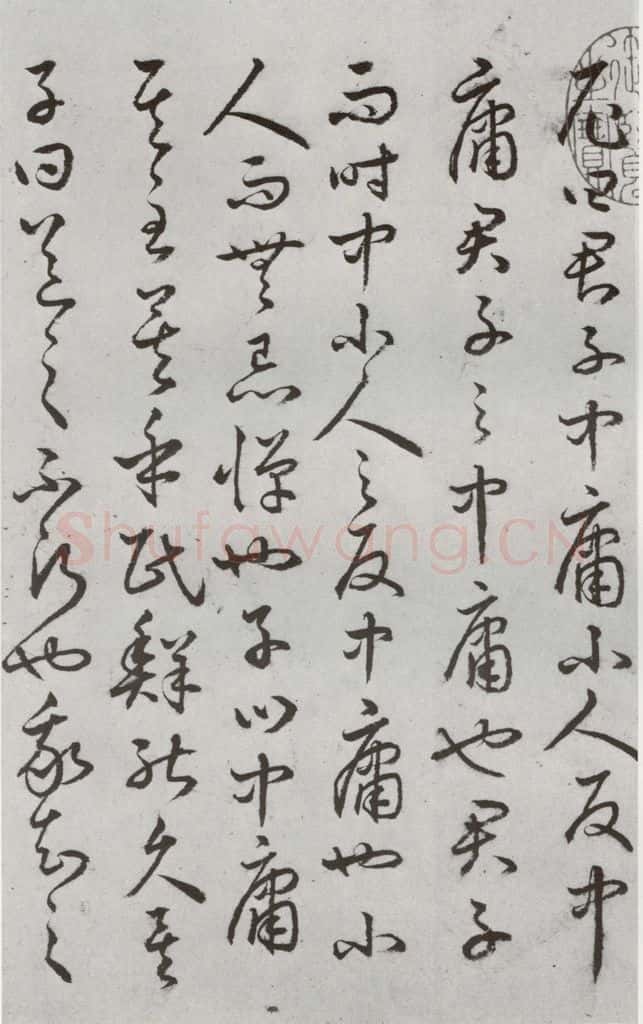 尼曰君子中庸小人反中
庸君子之中庸也君子
而時中小人之反中庸也小
人而無忌憚也子曰中庸
其至矣乎民鮮能久矣
子曰道之不行也我知之
Shufawang.CN